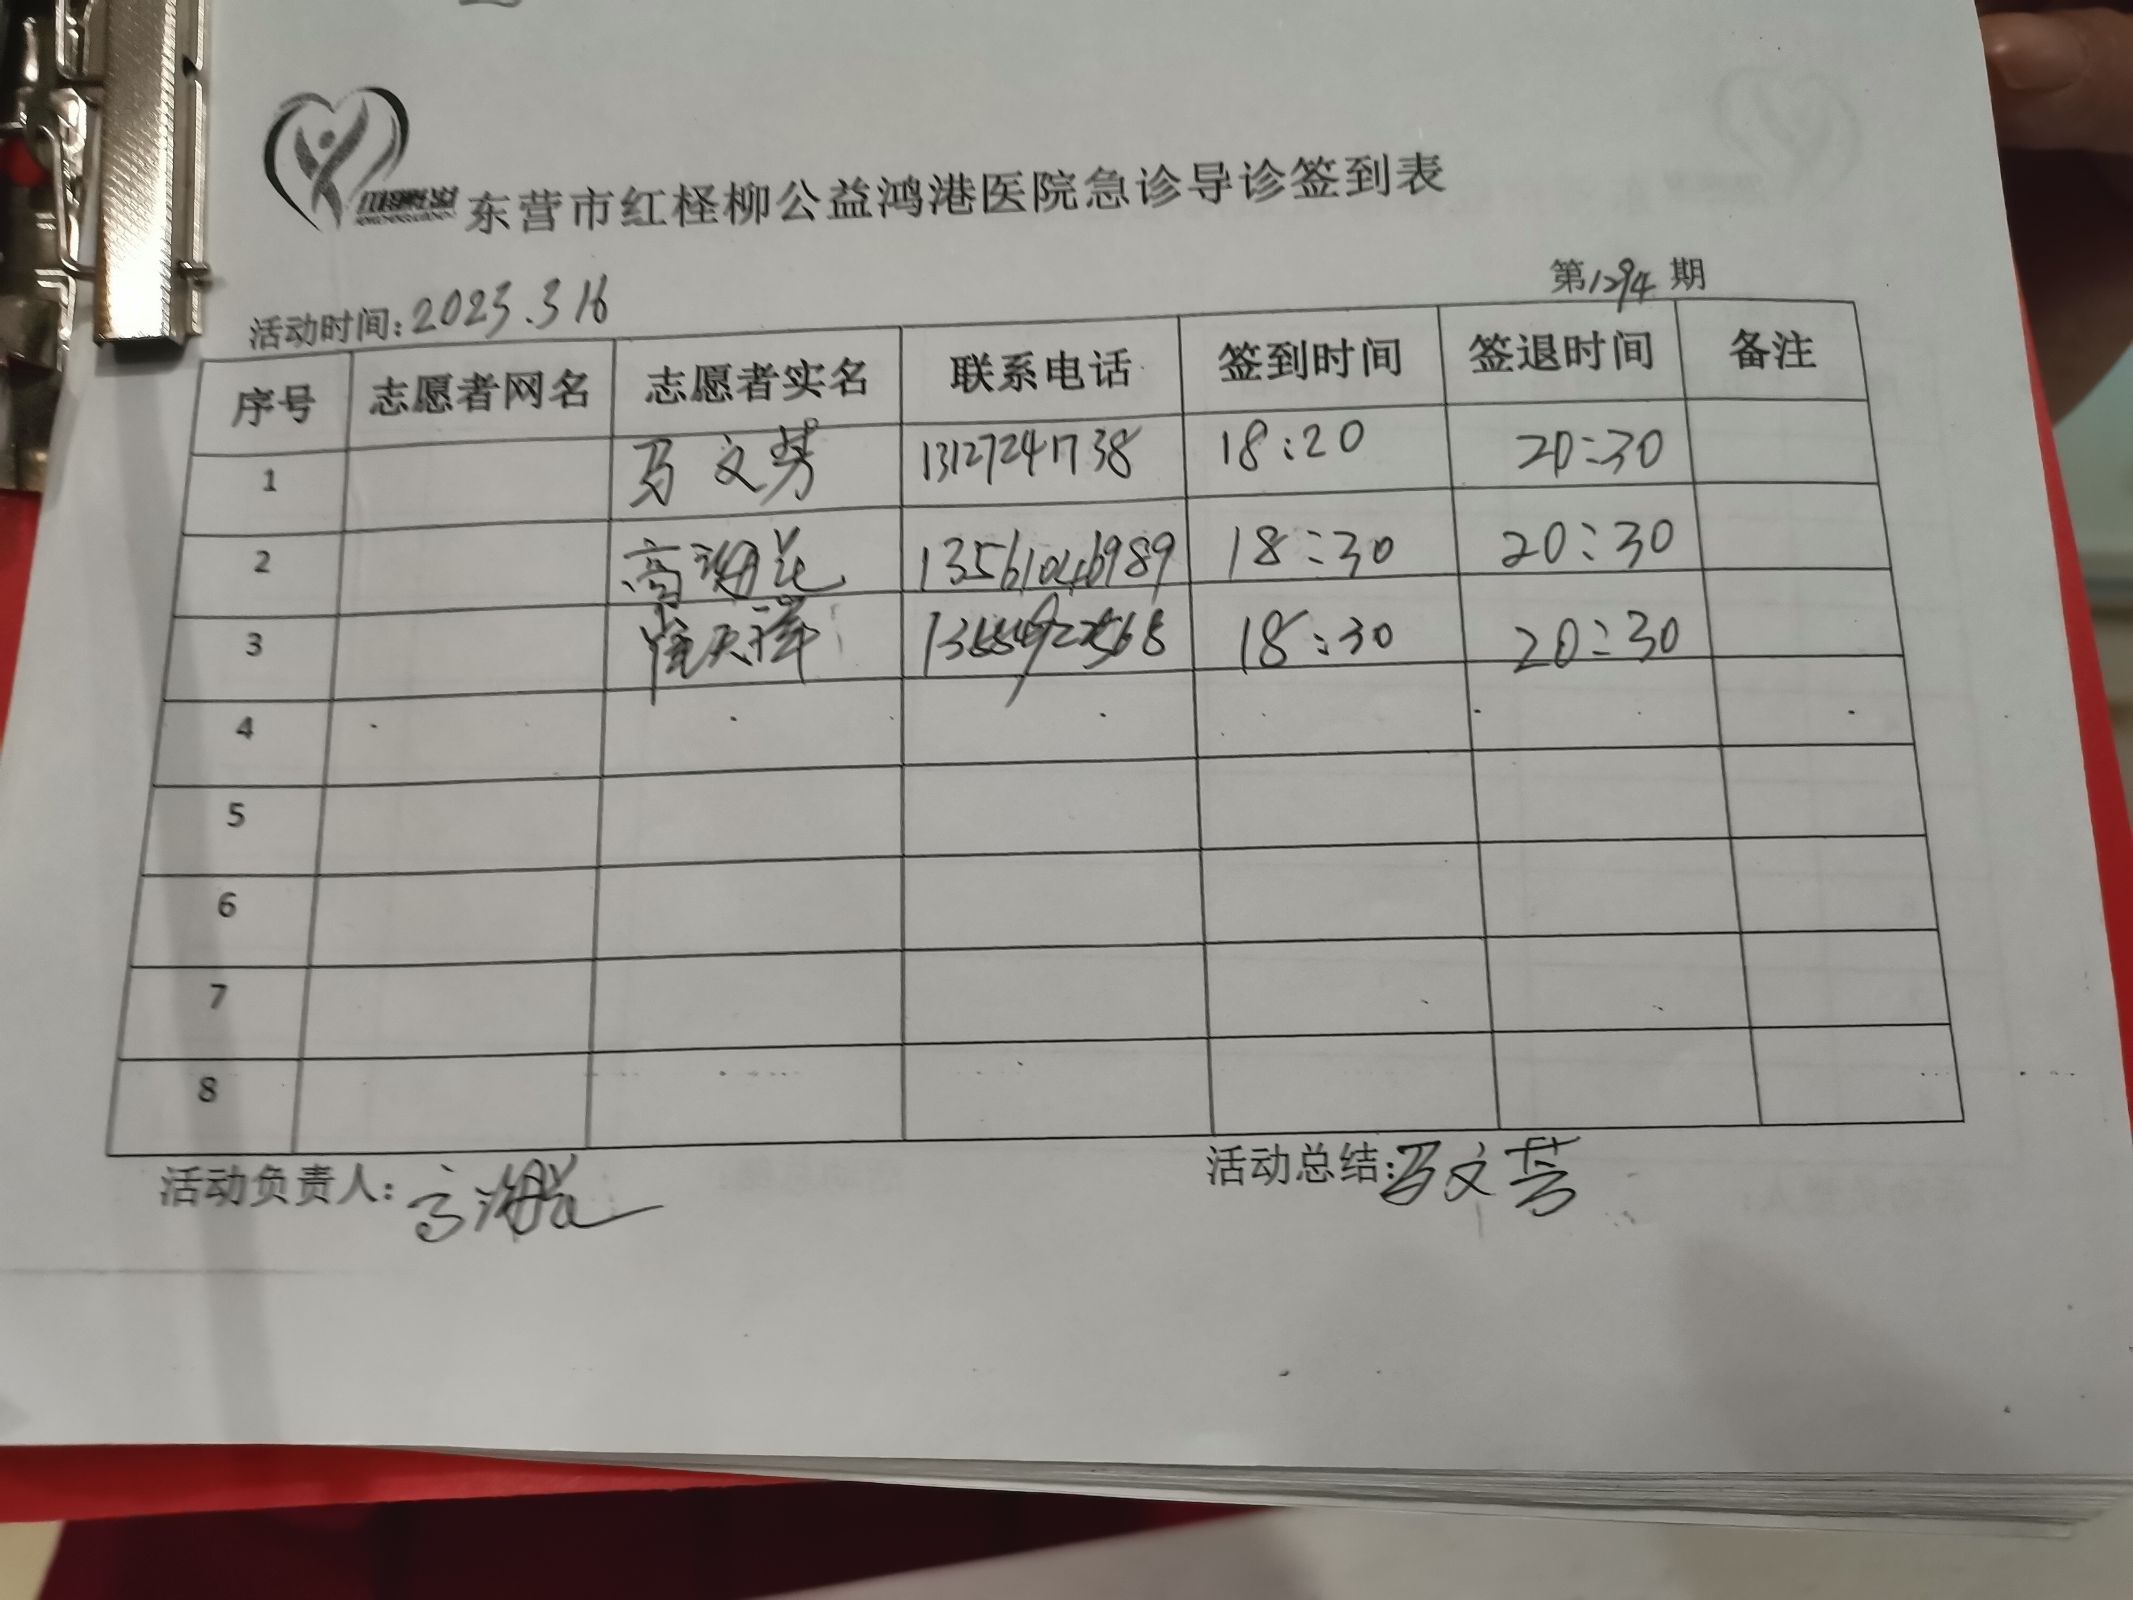 东营市红柽柳公益鸿港医院急诊导诊签到表
第1294期
活动时间:2023.3.16
序号 志愿者网名 志愿者实名 联系电话 签到时间 签退时间 备注
1 马文芳 13127241738 18:20 20:30
2 高 13561046989 18:30 20:30
3 18:30 20:30
4
5
6
7
8
活动负责人: 活动总结:马文芳